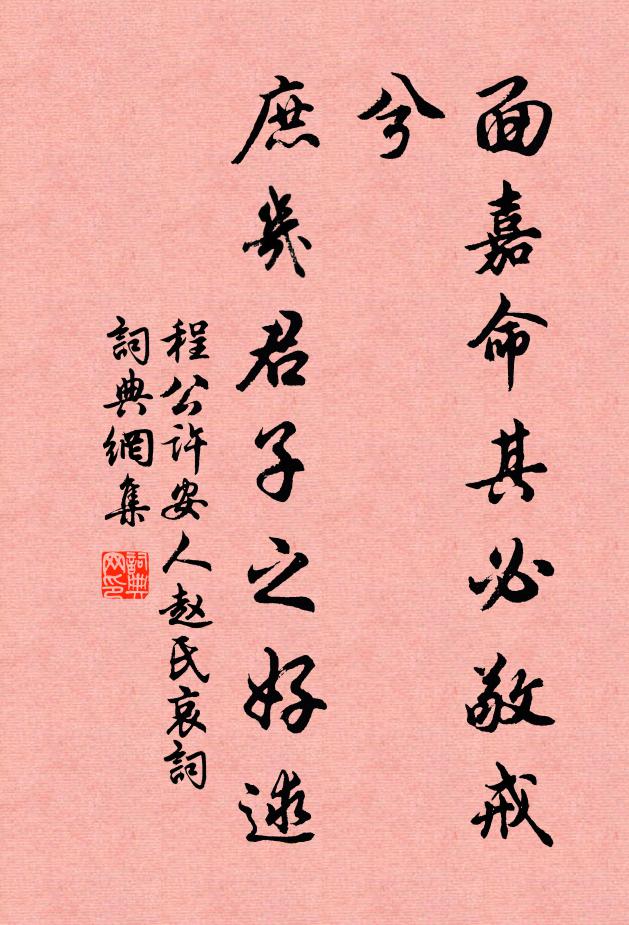 面嘉命其必敬戒
兮
庶几君子之好逑
程公许安人赵氏哀詞
詞典網集
詞典网印